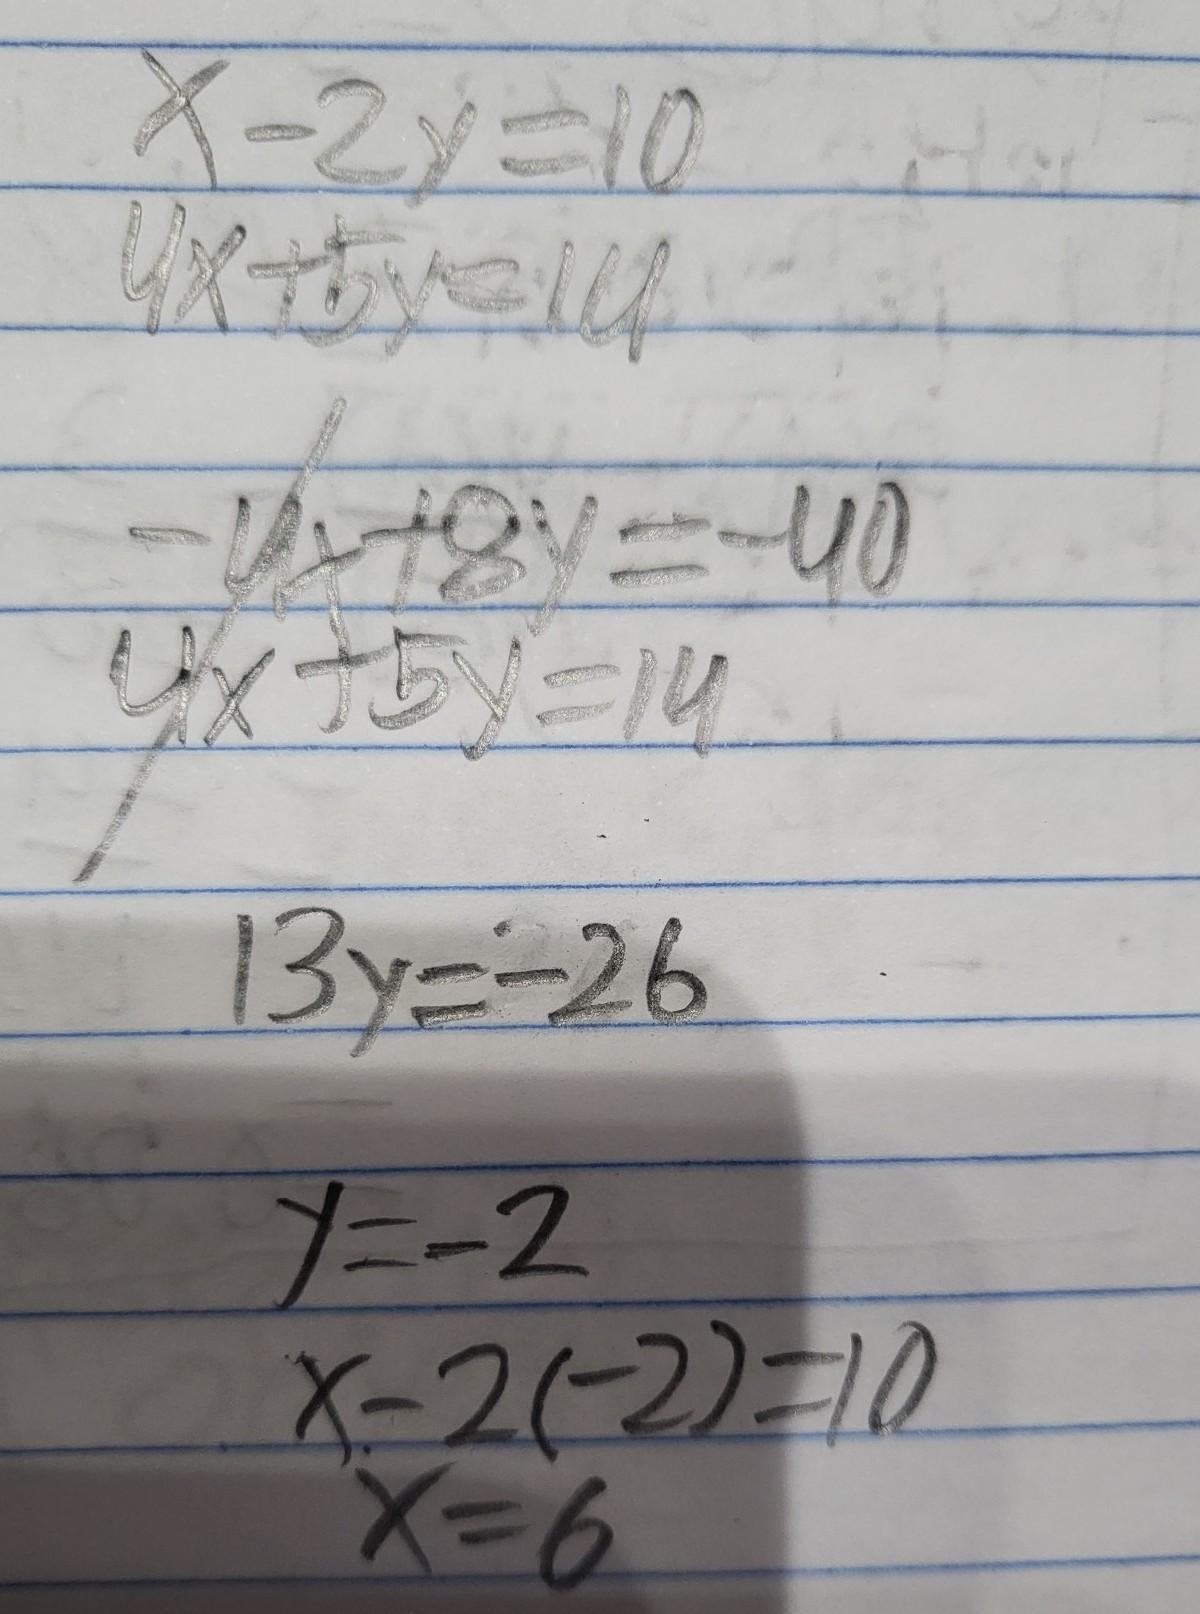 x-2y=10
4x+5y=14
-4x+8y=-40
4x+5y=14
13y=-26
y=-2
x-2(-2)=10
x=6